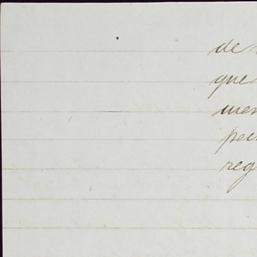 de
que
mer
pec
reg